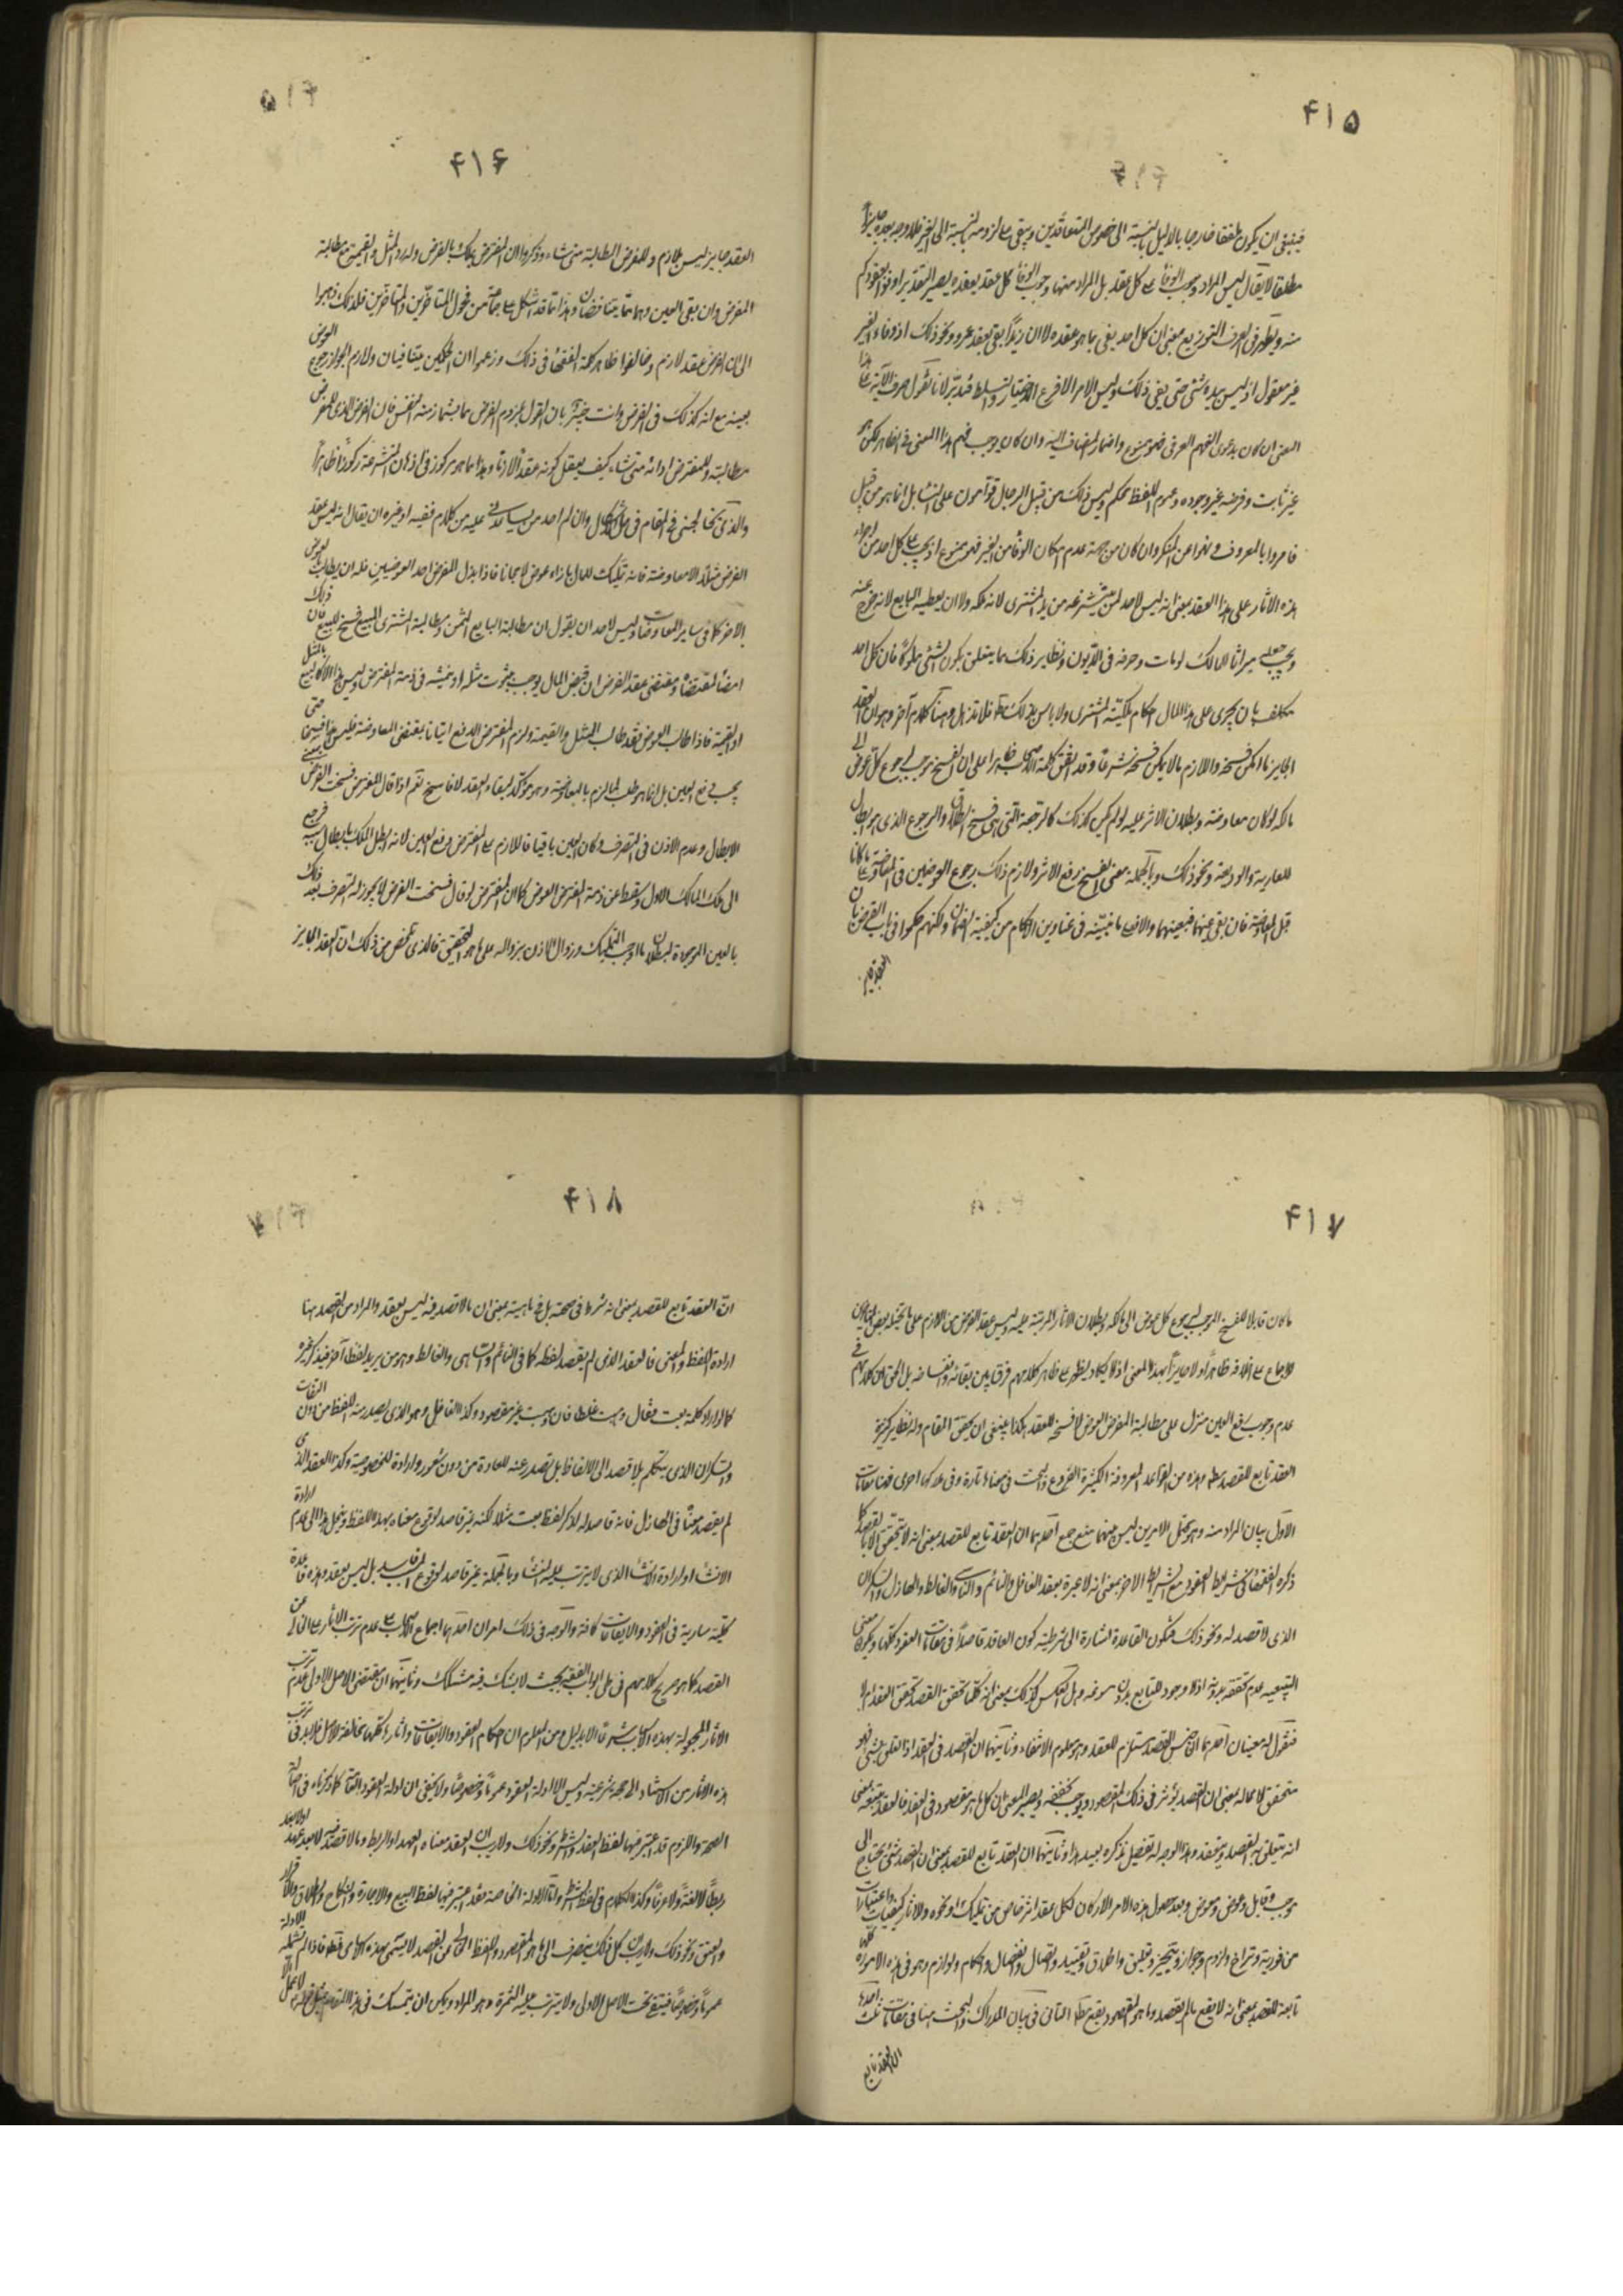 ۴۱۵
فينبغی ان يكون مطلقا خارجا بالدليل بالنسبة الی خصوص المتعاقدين ويبقی علی لزومه بالنسبة الی الغير فلا وجه بعده جايزا
مطلقا لا يقال ليس المراد وجوب الوفاء علی كل بعقد بل المراد منها وجوب الوفاء كل بعقد يعقده يصير التقدير اوفوا بعقودكم
منه ويظهر فی العرف التوزيع بمعنی ان كل احد يفی بما هو عقده لا ان زيدا يفی بعقد عمرو ونحو ذلك اذ وفاء الغير
غير معقول اذ ليس بيده شئ حتی يفی ذلك وليس الامر الا فرع الاختيار والتسلط فتدبر لانا نقول صرف الآية علی هذا
المعنی ان كان بدعوی الفهم العرفی فهو ممنوع واضمار المضاف اليه وان كان يوجب فهم هذا المعنی فی الظاهر لكن هو
غير ثابت وفرضه غير وجوده وعموم اللفظ محكم وليس ذلك من قبيل الرجال قوامون علی النساء بل انما هو من قبيل
فامروا بالمعروف وانهوا عن المنكر وان كان من جهة عدم امكان الوفاء من الغير فهو ممنوع اذ يجب علی كل احد من اجراء
هذه الآثار علی هذا العقد بمعنی انه ليس لاحد ان ينتزعه من يد المشتری لانه ملكه ولا ان يعطيه البايع لانه خرج عنه
ويجب جعله ميراثا للمالك لو مات وصرفه فی الديون ونظاير ذلك مما يتعلق بكون الشئ ملوكا فان كل احد
مكلف بان يجری علی هذا المال احكام ملكية المشتری ولا باس بذلك فلا تذهل وهنا كلام آخر وهو ان العقد
الجايز ما امكن فسخه واللازم ما لا يمكن فسخه شرعا وقد اتفق كلمة الاصحاب ظاهرا علی ان الفسخ موجب لرجوع كل عوض الی
مالكه لو كان معاوضة وبطلان الاثر عليه لو لم يكن كذلك كالرجعة التی هی فسخ الطلاق والرجوع الذی هو ابطال
للعارية والوديعة ونحو ذلك وبالجملة معنی الفسخ رفع الاثر ولازم ذلك رجوع العوضين فی المعاوضة علی ما كانا
قبل المعاوضة فان بقی عينهما فبعينهما والا فعلی ما نبينه فی عناوين احكام من كيفية الضمان ولكنهم حكموا فی باب القرض بان
العقد جايز
۴۱۶
العقد جايز ليس بلازم وللمقرض المطالبة متی شاء وذكروا ان المقترض يملك بالقرض وله رد المثل والقيمة مع مطالبة
المقرض وان بقی العين وهما مما يتناقضان وهذا مما قد اشكل علی جماعة من فحول المتأخرين ومتأخرين فلذلك ذهبوا
الی ان القرض عقد لازم وخالفوا ظاهر كلمة الفقهاء فی ذلك وزعموا ان الحكمين متنافيان ولازم الجواز رجوع العوض
بعينه مع انه كذلك فی القرض وانت خبير بان القول بلزوم القرض مما يشمأز منه النفس فان القرض الذی للمقرض
مطالبته وللمقترض ادائه متی شاء كيف يعقل كونه عقدا لازما وهذا مما هو مركوز فی اذهان المتشرعة ركوزا ظاهرا
والذی يختلجنی فی المقام فی حل الاشكال وان لم اجد من يساعدنی عليه من كلام فقيه او غيره ان يقال انه ليس عقد
القرض مثلا الا معاوضة فانه تمليك للمال بازاء عوض لا مجانا فاذا بذل المقرض احد العوضين فله ان يطالب بعوض
الآخر كما فی ساير المعاوضات وليس لاحد ان يقول ان مطالبة البايع الثمن ومطالبة المشتری المبيع فسخ للبيع فان ذلك
امضاء لمقتضاه ومقتضی عقد القرض ان قبض المال يوجب ثبوت مثله او قيمته فی ذمة المقترض وليس هذا الا كالبيع بالمثل
او القيمة فاذا طالب العوض فقد طالب المثل والقيمة ولزم المقترض الدفع اتيانا بمقتضی المعاوضة فليس هذا فسخا حتی
يجب دفع العين بل انما هو طلب لما لزم بالمعاوضة وهو مؤكد لبقاء العقد لا فاسخ نعم اذا قال المقرض فسخت القرض بمعنی
الابطال وعدم الاذن فی التصرف وكان العين باقيا فاللازم علی المقترض دفع العين لانه ابطل الملك بابطال سببه فرجع
الی ملك المالك الاول وسقط عن ذمة المقترض العوض كما ان المقترض لو قال فسخت القرض لا يجوز له التصرف بعد ذلك
بالعين الموجودة لبطلان ما اوجب التمليك وزوال الاذن بزواله علی ما هو التحقيق فالذی تمحض من ذلك ان العقد الجايز
۴۱۷
ما كان قابلا للفسخ الموجب لرجوع كل عوض الی مالكه وبطلان الاثار المرتبة عليه وليس عقد القرض من اللازم علی ما تخيله بعض
والاجماع علی خلافه ظاهرا ولا جايزا بهذا المعنی اذ لا يكاد يظهر علی ظاهر كلامهم فرق بين بقائه وانفساخه بل الحق ان كلامهم فی
عدم وجوب دفع العين منزل علی مطالبة المقرض العوض لا فسخه للعقد هكذا ينبغی ان يحقق المقام وله نظاير كثيرة
العقد تابع للقصد وهذه من القواعد المعروفة الكثيرة الفروع والبحث فی معناه تارة وفی مدركها اخری فهنا مقامات
الاول بيان المراد منه وهو يحتمل الامرين ليس بينهما منع جمع احدهما ان العقد تابع للقصد بمعنی انه لا يتحقق الا بالقصد كما
ذكره الفقهاء فی شرايط العقود مع الشرايط الاخر بمعنی انه لا عبرة بعقد الغافل والنائم والناسی والغالط والهازل والسكران
الذی لا قصد له ونحو ذلك فتكون القاعدة اشارة الی شرطية كون العاقد قاصدا فی مقامات العقود كلها ويكون معنی
التبعية عدم تحققه بدونه اذ لا وجود للتابع بدون متبوعه وهل العكس كذلك بمعنی انه كلما تحقق القصد تحقق العقد ام لا
فنقول له معنيان احدهما ان جنس القصد مستلزم للعقد وهو معلوم الانتفاء وثانيهما ان القصد فی العقد اذا تعلق بشئ فهو
متحقق لا محالة بمعنی ان القصد يؤثر فی ذلك المقصود ويوجب تحققه ويصير المعنی ان كل ما هو مقصود فی العقد فالعقد يتبعه بمعنی
انه يتعلق به القصد ويتحقق وهذا الوجه له تفصيل نذكره بعيد هذا وثانيهما ان العقد تابع للقصد بمعنی ان العقد شئ يحتاج الی
موجب وقابل وعوض ومعوض وبعد حصول هذه الامر الاركان لكل عقد اثر خاص من تمليك او نحوه والاثار كيفيات واعتبارات
من فورية وتراخ ولزوم وجواز وتنجيز وتعليق واطلاق وتقييد واتصال وانفصال واحكام ولوازم وهو فی هذه الامور كلها
تابعة للقصد بمعنی انه لا يقع ما لم يقصد وما هو المقصود يقع الثانی فی بيان المدرك والبحث هنا فی مقامات ثلث احدها
ان العقد تابع
۴۱۸
ان العقد تابع للقصد بمعنی انه شرط فی صحته بل فی ماهيته بمعنی ان ما لا قصد فيه ليس بعقد والمراد من القصد هنا
ارادة اللفظ والمعنی فالعقد الذی لم يقصد لفظه كما فی النائم والساهی والغالط وهو من يريد لفظا آخر فيذكر غيره
كما لو اراد كلمة بعت فقال وهبت غلطا فان وهبت غير مقصود وكذا الغافل وهو الذی يصدر منه اللفظ من دون التفات
والسكران الذی يتكلم بلا قصد الی الالفاظ بل تصدر عنه للعادة من دون شعور وارادة للخصوصية وكذا العقد الذی
لم يقصد معناه فی الهازل فانه قاصد لذكر لفظ بعت مثلا لكنه غير قاصد لوقوع معناه بهذا اللفظ ويحتمل هذا الی عدم ارادة
الانشاء او لارادة الانشاء الذی لا يترتب عليه المنشأ وبالجملة غير قاصد لوقوع البيع فاسد بل ليس بعقد وهذه قاعدة
كلية سارية فی العقود والايقاعات كافة والوجه فی ذلك امران احدهما اجماع الاصحاب علی عدم ترتب الاثار علی الخالی عن
القصد كما هو صريح كلامهم فی علی ابواب الفقه بحيث لا يشك فيه مشكك وثانيهما ان مقتضی الاصل الاولی عدم ترتب
الاثار المجعولة بهذه الاسباب شرعا الا بدليل ومن المعلوم ان احكام العقود والايقاعات واثارها كلها مخالفة للاصل فلا بد فی ترتب
هذه الاثار من الاستناد الی حجة شرعية وليس الا ادلة العقود عموما وخصوصا ولا يخفی ان ادلة العقود العامة كما ذكرناه فی اصالة
الصحة واللزوم قد اعتبر فيها لفظ العقد والشرط ونحو ذلك ولا ريب ان العقد معناه العهد او الربط وما لا قصد فيه لا يعد عهدا ولا يعد
ربطا لا لغة ولا عرفا وكذا الكلام فی لفظ الشرط واما الادلة الخاصة فقد اعتبر فيها لفظ البيع والاجارة والنكاح والطلاق والاقرار
والعتق ونحو ذلك ولا ريب ان كل ذلك ينصرف الی ما هو المقصود واللفظ الخالی عن القصد لا يسمی بهذه الاسامی قطعا فاذا لم تشمله الادلة
عموما وخصوصا فيبقی تحت الاصل الاولی ولا يترتب عليه الثمرة وهو المراد ويمكن ان يتمسك فی هذا المقام بمثل قوله لا عمل الا